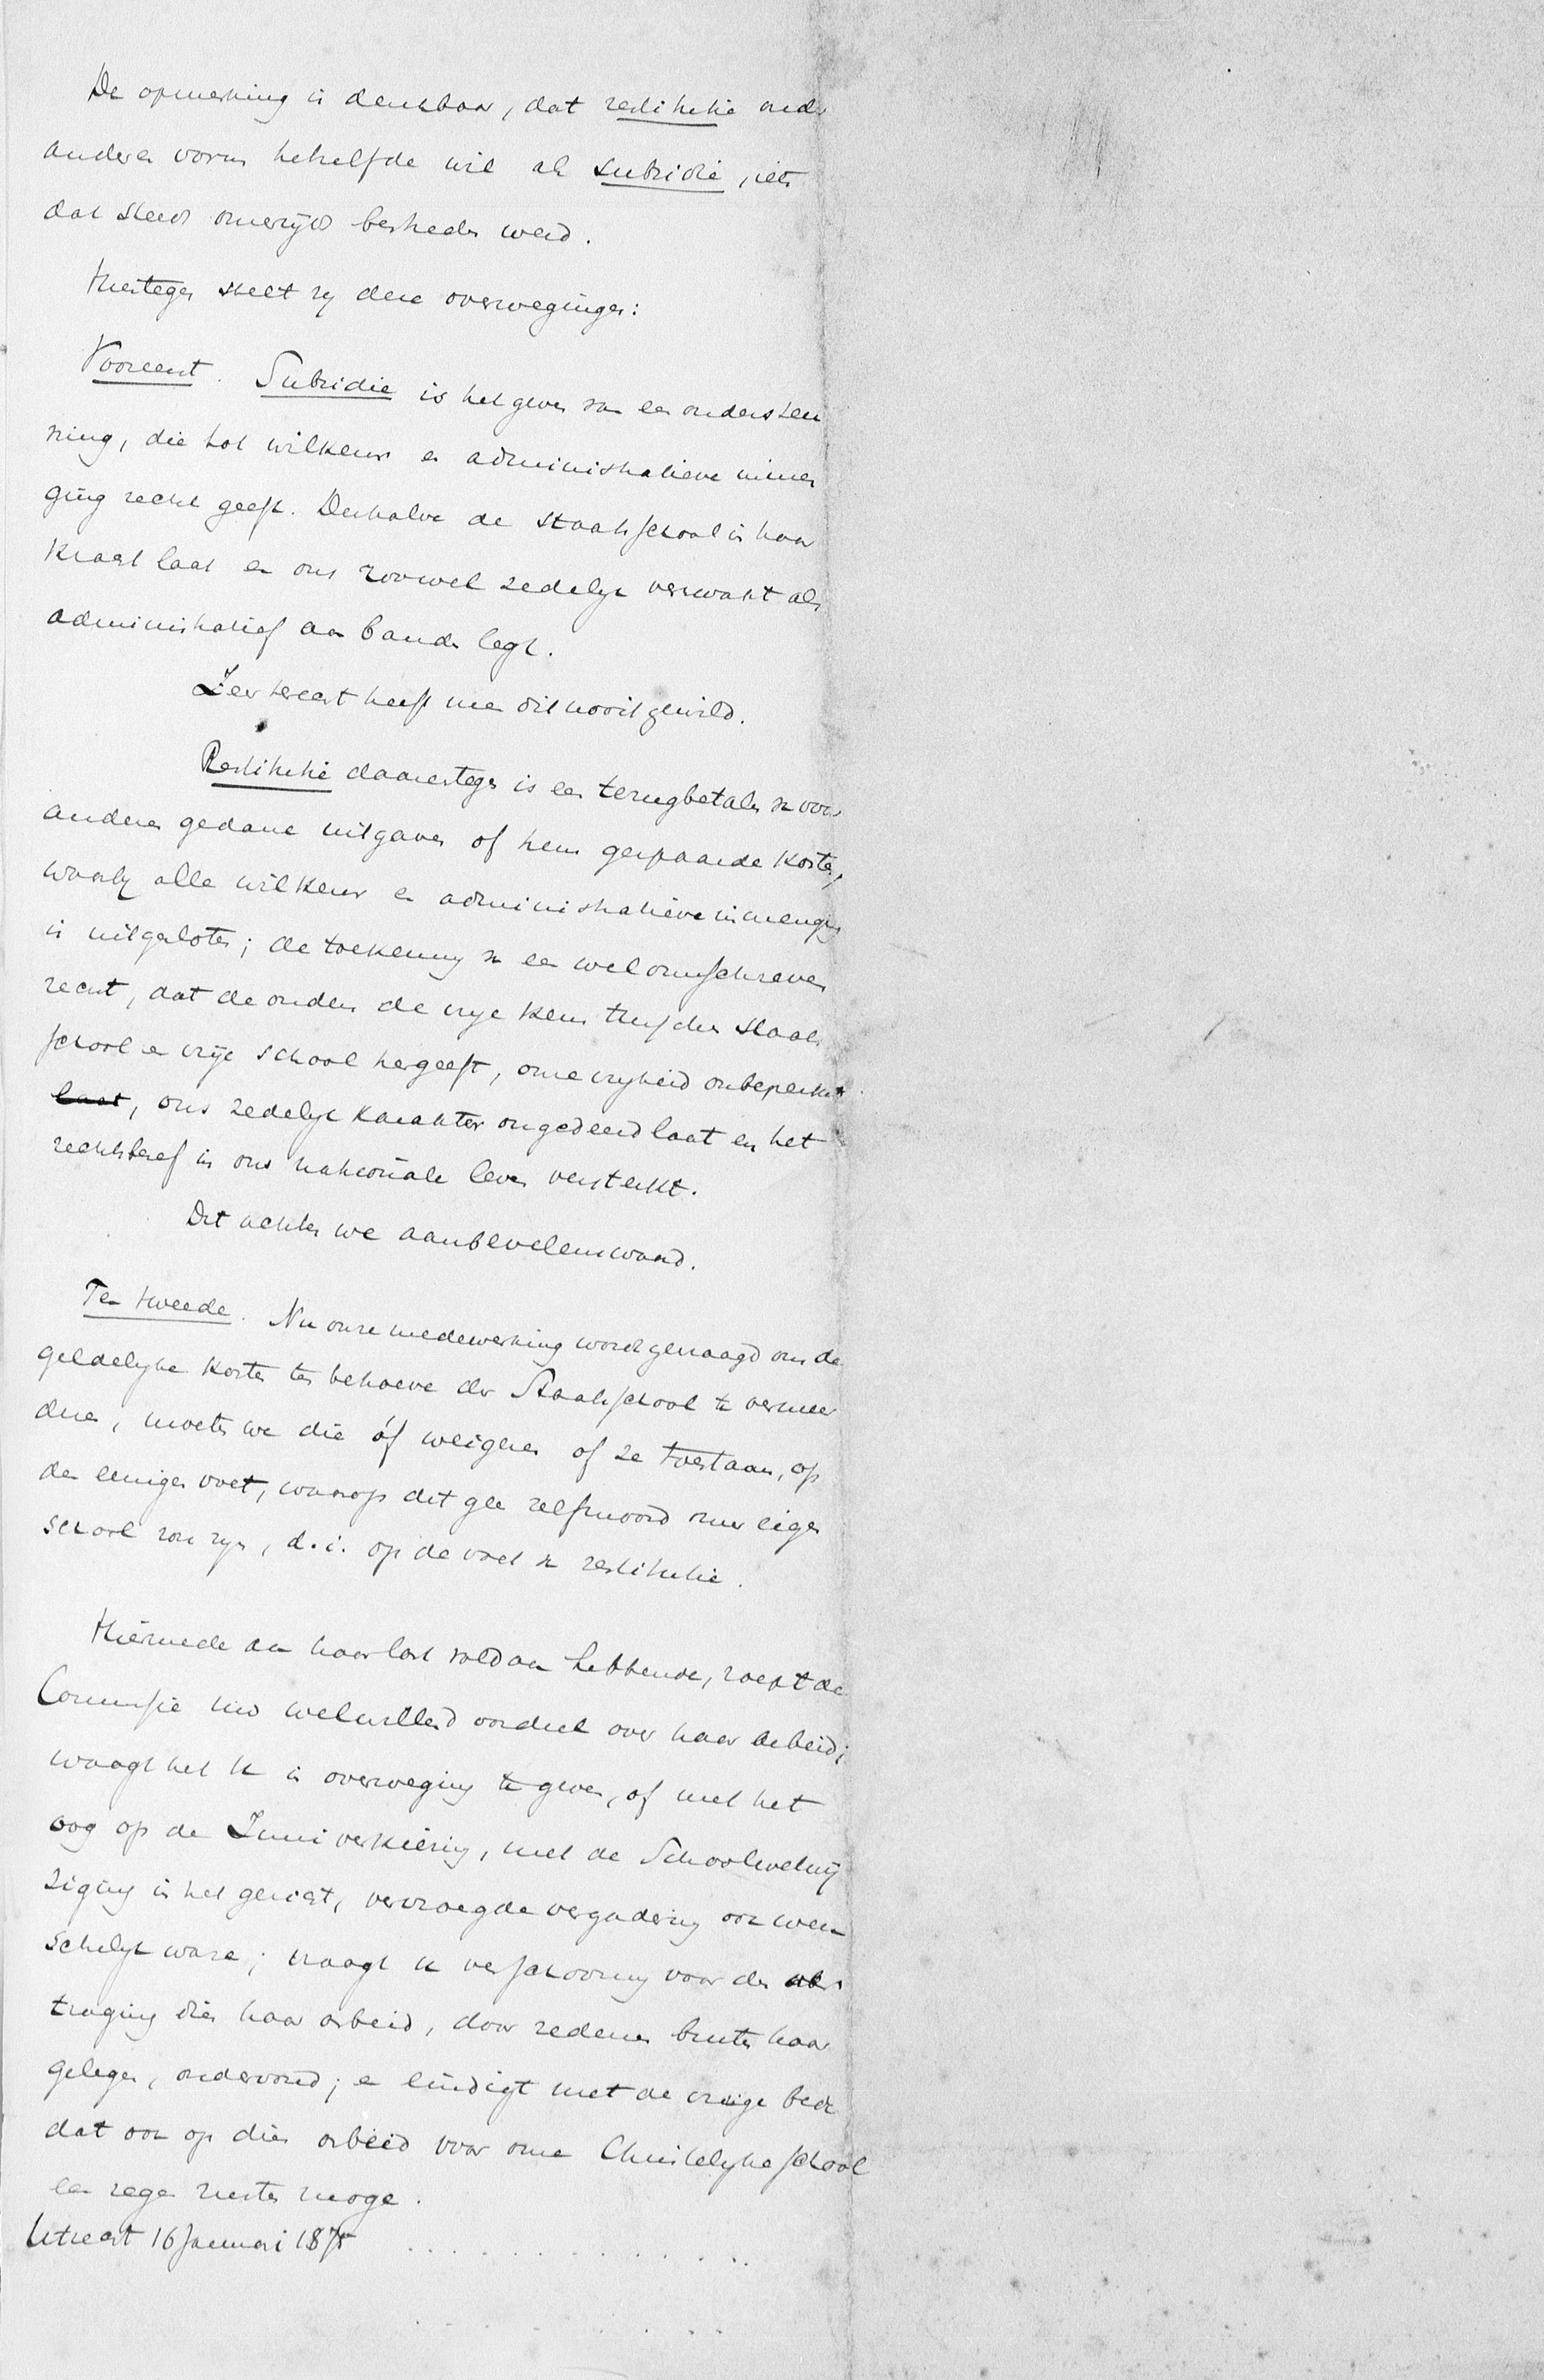 De opmerking is denkbaar, dat restitutie onder
anderen vorm hetzelfde wil als subsidie, iets
dat steeds onzerzijds bestreden werd.
Hiertegen stelt zij deze overwegingen:
Vooreerst. Subsidie is het geven van een ondersteu
ning, die tot willekeur en administratieve inmen
ging recht geeft. Derhalve de staatsschool in haar
kracht laat en ons zoowel zedelijk verzwakt als
administratief aan banden legt.
Zeer terecht heeft men dit nooit gewild.
Restitutie daarentegen is een terugbetalen van voor
anderen gedane uitgaven of hem gespaarde kosten,
waarbij alle willekeur en administratieve inmenging
is uitgesloten; de toekenning van een wel omschreven
recht, dat de ouders de vrije keus tusschen staats
school en vrije school hergeeft, onze vrijheid onbeperkt
laat, ons zedelijk karakter ongedeerd laat en het
rechtsbesef in ons nationale leven versterkt.
Dit achten we aanbevelenswaard.
Ten tweede. Nu onze medewerking wordt gevraagd om de
geldelijke kosten ten behoeve der Staatsschool te vermeer
deren, moeten we die óf weigeren of ze toestaan, op
den eenigen voet, waarop dit geen zelfmoord onzer eigen
school zou zijn, d.i. op de voet van restitutie.
Hiermede aan haar last voldaan hebbende, roept de
Commissie uw welwillend oordeel over haar arbeid in;
waagt het U in overweging te geven, of met het
oog op de Juni verkiezing, met de Schoolwetwij
ziging in het gezicht, vervroegde vergadering ook wen
schelijk ware; vraagt U verschooning voor de ver
traging dien haar arbeid, door redenen buiten haar
gelegen, ondervond; en eindigt met de vrome bede
dat ook op dien arbeid voor onze Christelijke school
een zegen rusten moge.
Utrecht 16 Januari 1875